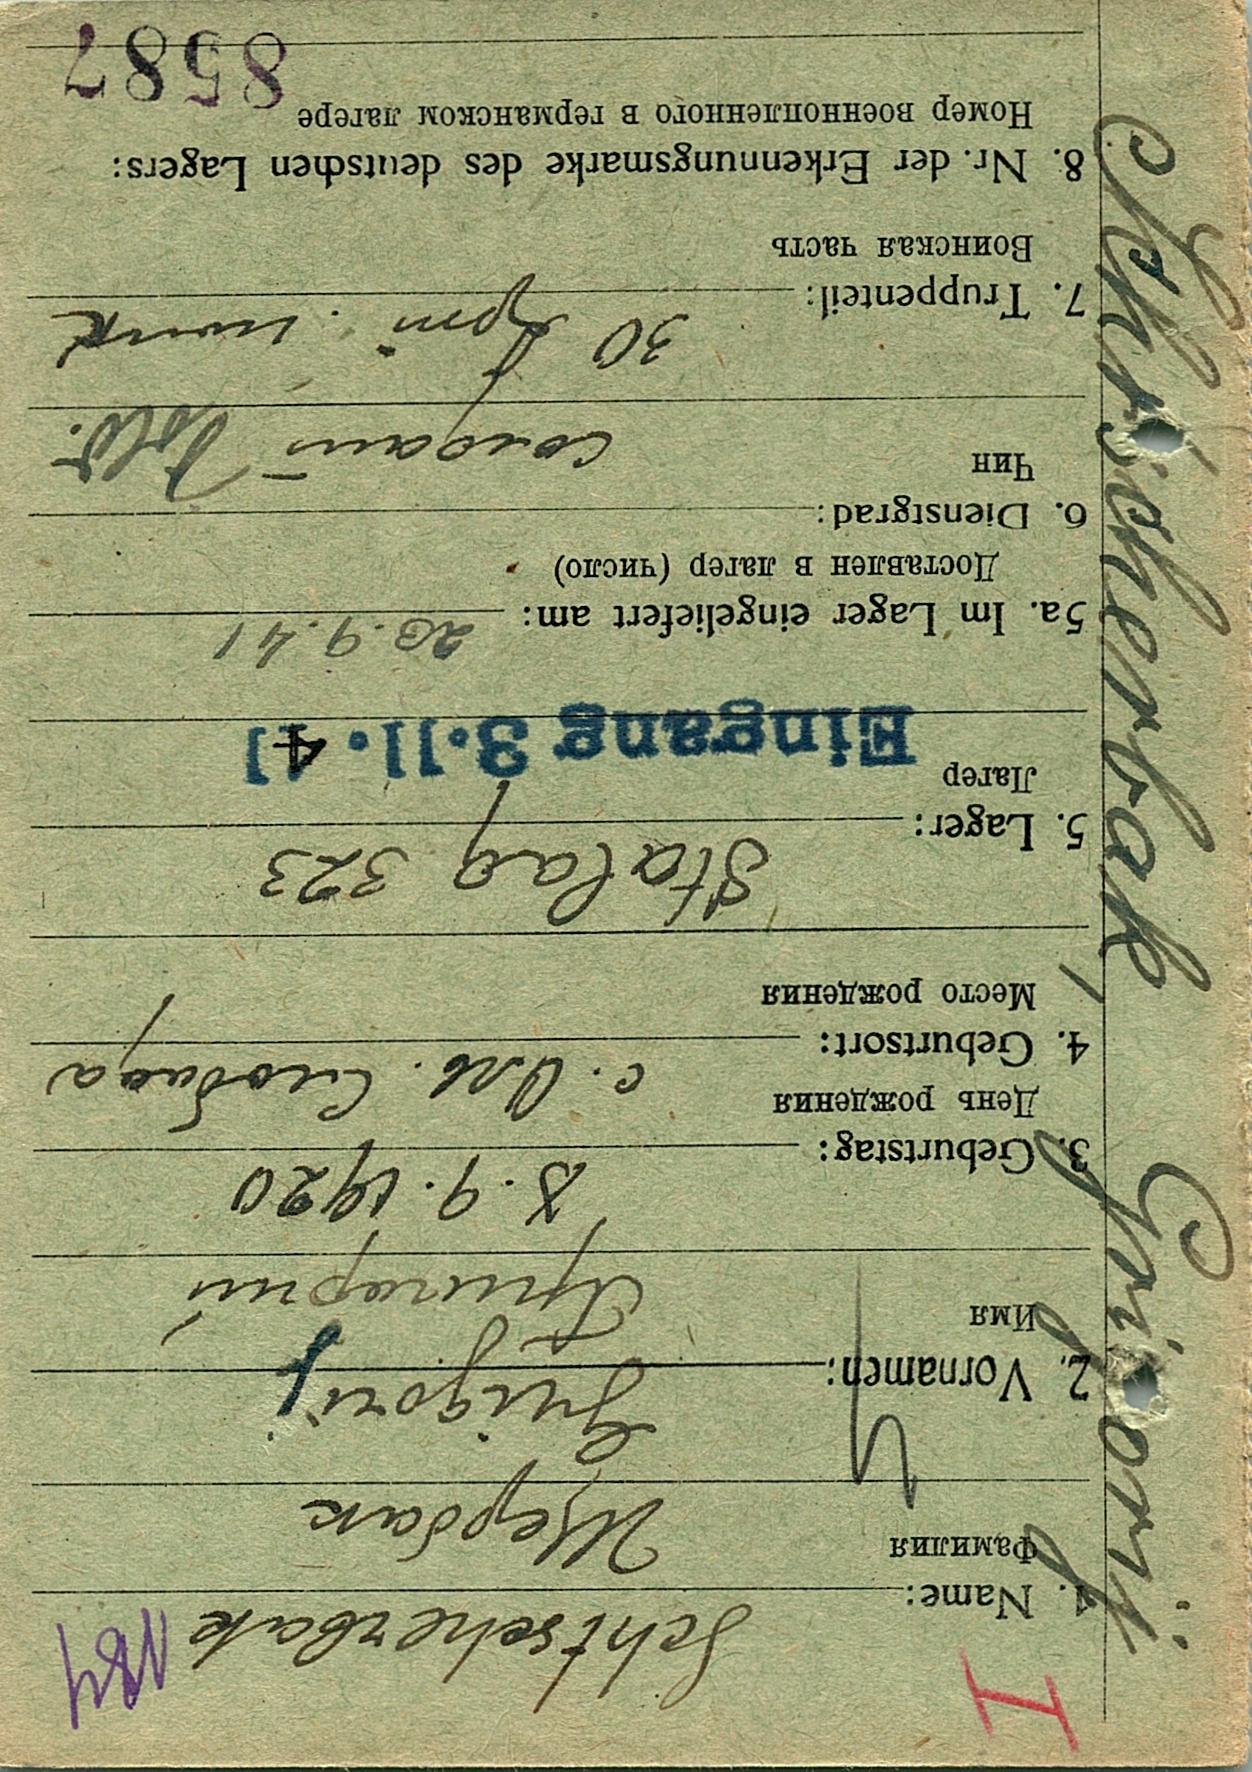 I
184
Schtscherbak, Grigorij
1. Name: Schtscherbak
Фамилия
Щербак
2. Vornamen: Grigorij
Имя
Григорий
3. Geburtstag: 8.9.1920
День рождения
4. Geburtsort: с. Слобода
Место рождения
5. Lager: Stalag 323
Лагер
Eingang 3.11.41
5a. Im Lager eingeliefert am: 20.9.41
Доставлен в лагер (число)
6. Dienstgrad:
Чин
солдат Sold.
7. Truppenteil: 30
Воинская часть
8. Nr. der Erkennungsmarke des deutschen Lagers:
Номер военнопленного в германском лагере
8587